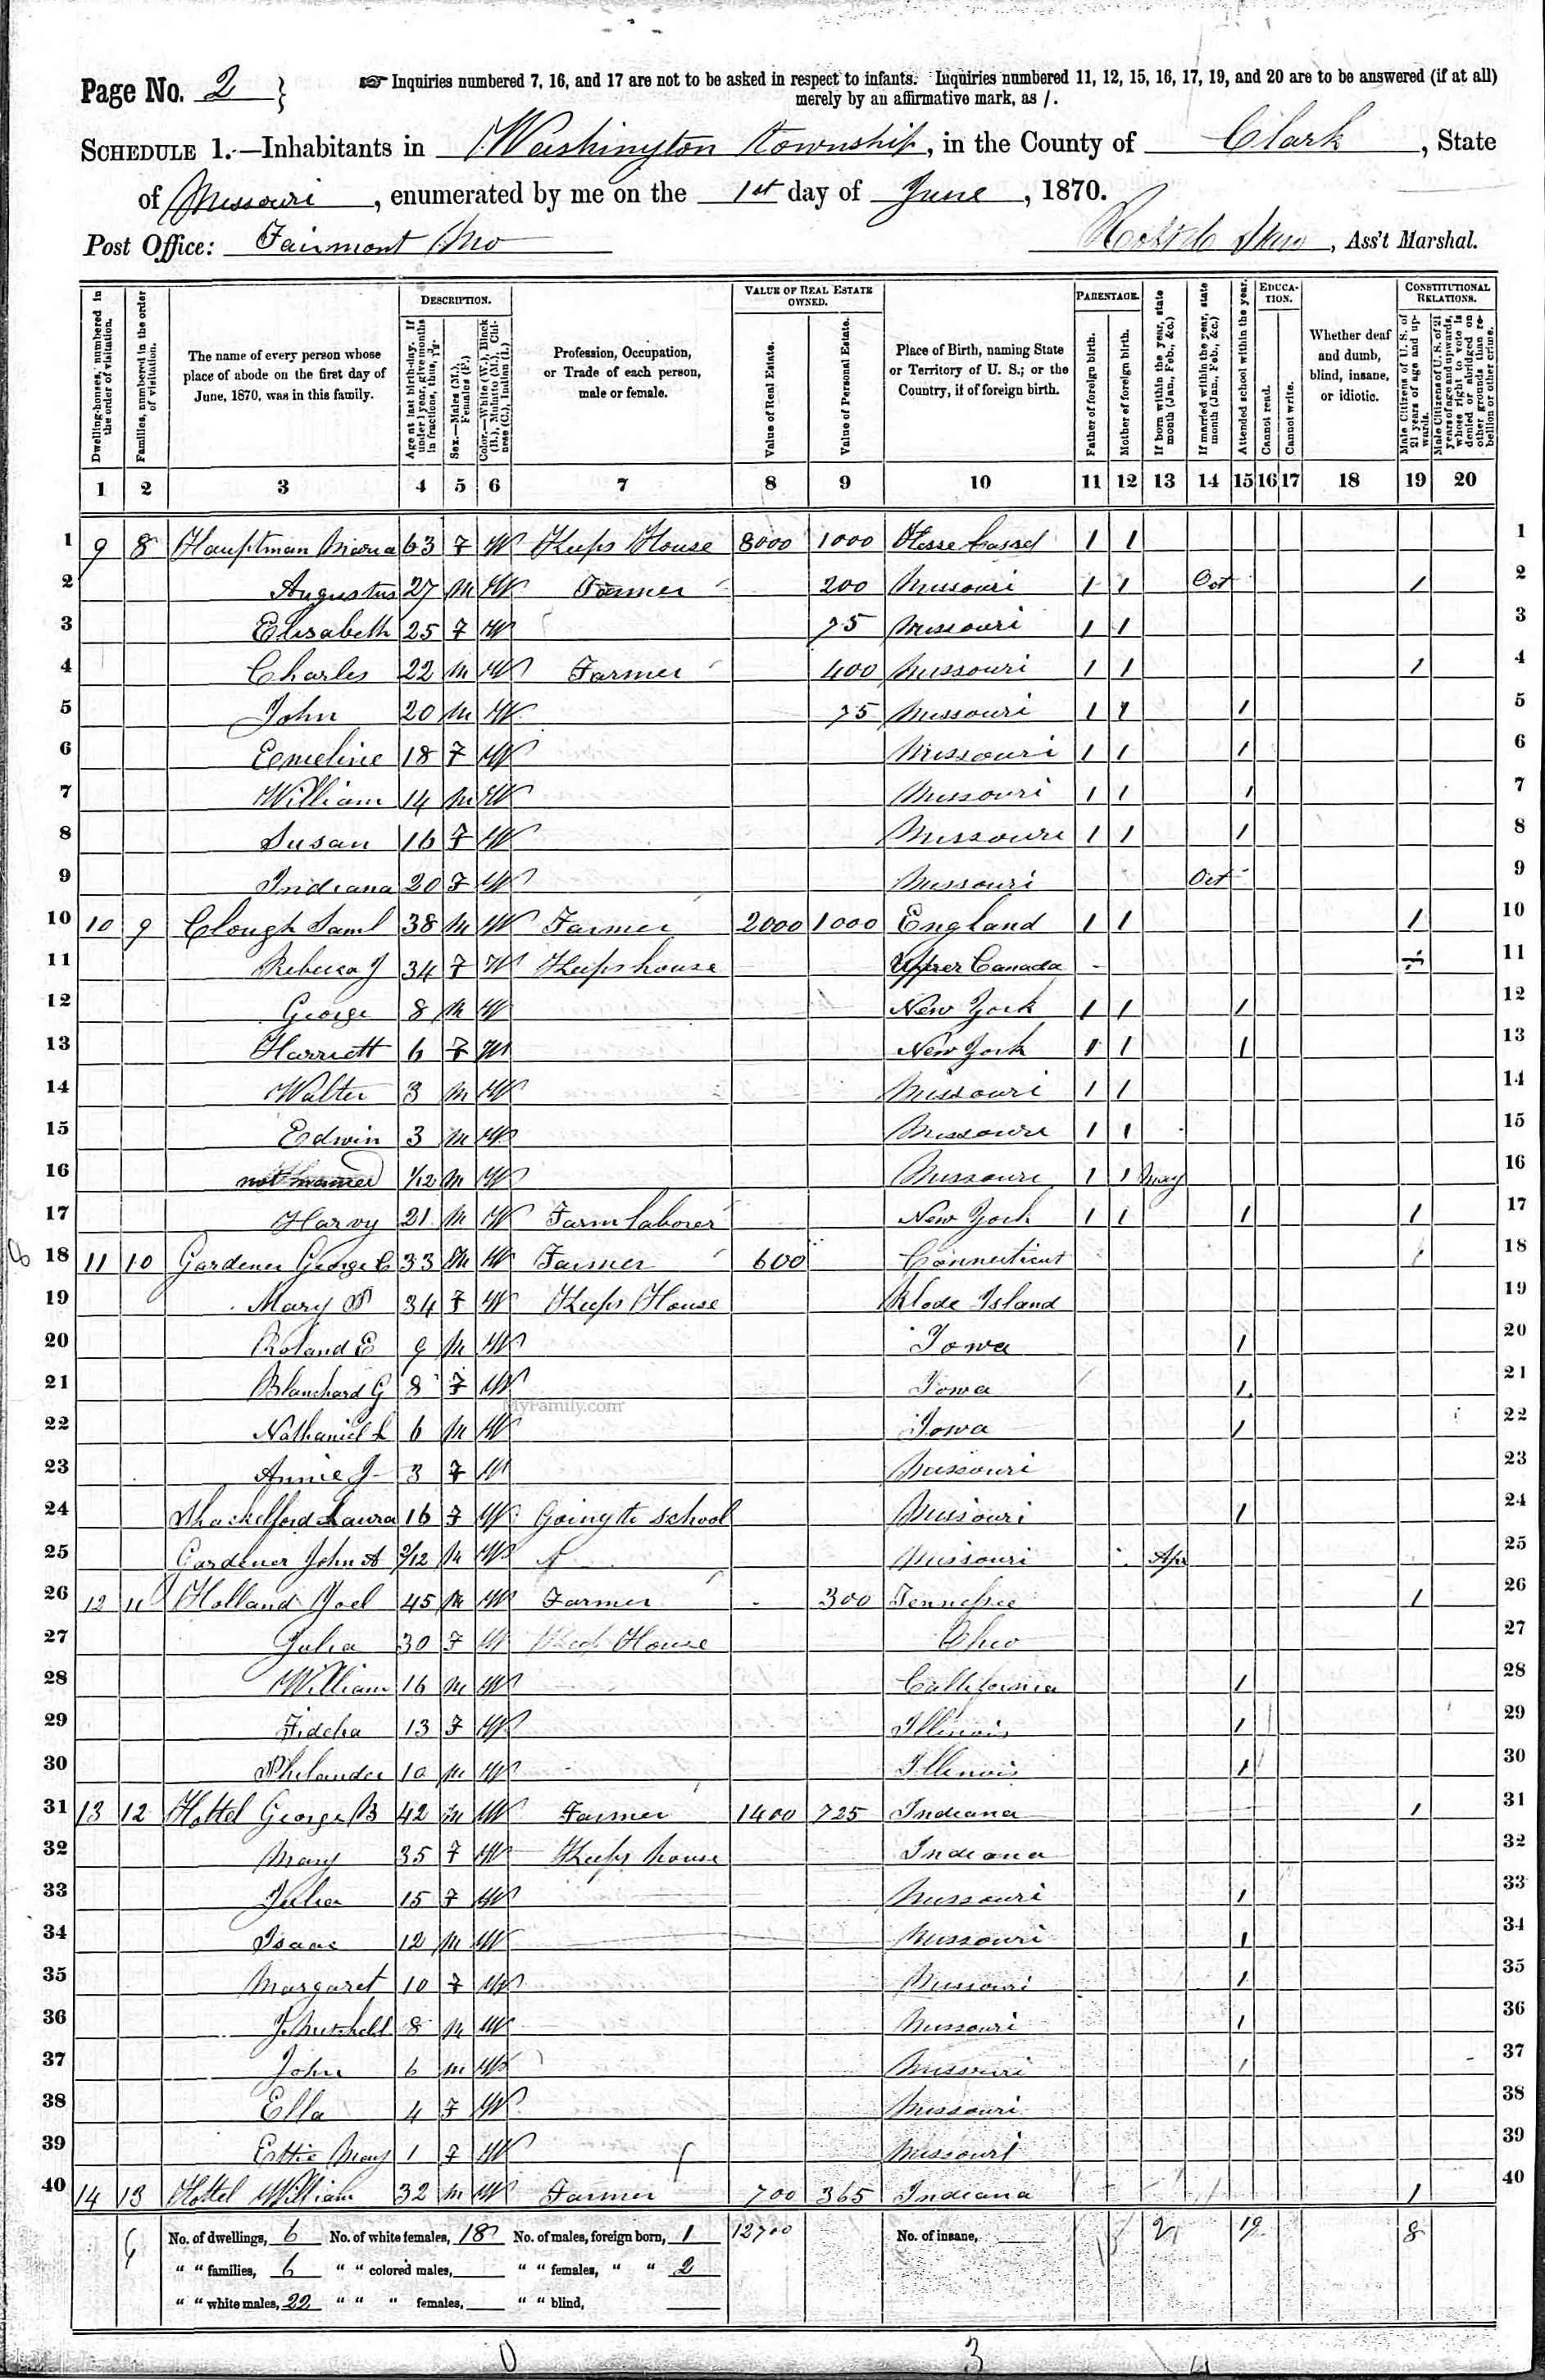 Page No. 2 } Inquiries numbered 7, 16, and 17 are not to be asked in respect to infants. Inquiries numbered 11, 12, 15, 16, 17, 19, and 20 are to be answered (if at all)
merely by an affirmative mark, as /.
SCHEDULE 1.—Inhabitants in Washington Township, in the County of Clark, State
of Missouri, enumerated by me on the 1st day of June, 1870.
Post Office: Fairmont Mo , Ass't Marshal.
Dwelling-houses, numbered in the order of visitation.
Families, numbered in the order of visitation.
The name of every person whose place of abode on the first day of June, 1870, was in this family.
DESCRIPTION.
Age at last birth-day. If under 1 year, give months in fractions, thus, 3/12.
Sex.—Males (M.), Females (F.)
Color.—White (W.), Black (B.), Mulatto (M.), Chinese (C.), Indian (I.)
Profession, Occupation, or Trade of each person, male or female.
VALUE OF REAL ESTATE OWNED.
Value of Real Estate.
Value of Personal Estate.
Place of Birth, naming State or Territory of U. S.; or the Country, if of foreign birth.
PARENTAGE.
Father of foreign birth.
Mother of foreign birth.
If born within the year, state month (Jan., Feb., &c.)
If married within the year, state month (Jan., Feb., &c.)
Attended school within the year.
EDUCATION.
Cannot read.
Cannot write.
Whether deaf and dumb, blind, insane, or idiotic.
CONSTITUTIONAL RELATIONS.
Male Citizens of U. S. of 21 years of age and upwards.
Male Citizens of U. S. of 21 years of age and upwards, whose right to vote is denied or abridged on other grounds than rebellion or other crime.
1 2 3 4 5 6 7 8 9 10 11 12 13 14 15 16 17 18 19 20
1 9 8 Hauptman Maria 63 F W Keeps House 8000 1000 Hesse Cassel 1 1 1
2 Augustus 27 M W Farmer 200 Missouri 1 1 Oct 1 2
3 Elisabeth 25 F W 75 Missouri 1 1 3
4 Charles 22 M W Farmer 400 Missouri 1 1 1 4
5 John 20 M W 75 Missouri 1 1 1 5
6 Emeline 18 F W Missouri 1 1 1 6
7 William 14 M W Missouri 1 1 1 7
8 Susan 16 F W Missouri 1 1 1 8
9 Indiana 20 F W Missouri Oct 9
10 10 9 Clough Saml 38 M W Farmer 2000 1000 England 1 1 1 10
11 Rebecca J 34 F W Keeps house Upper Canada 11
12 George 8 M W New York 1 1 1 12
13 Harriett 6 F W New York 1 1 1 13
14 Walter 3 M W Missouri 1 1 14
15 Edwin 3 M W Missouri 1 1 15
16 not named 1/12 M W Missouri 1 1 May 16
17 Harvy 21 M W Farm laborer New York 1 1 1 1 17
18 11 10 Gardener George C 33 M W Farmer 600 Connecticut 1 18
19 Mary 34 F W Keeps House Rhode Island 19
20 Roland E 9 M W Iowa 1 20
21 Blanchard G 8 F W Iowa 1 21
MyFamily.com
22 Nathaniel L 6 M W Iowa 1 22
23 Annie J 3 F W Missouri 23
24 Shackelford Laura 16 F W Going to school Missouri 1 24
25 Gardener John A 2/12 M W Missouri Apr 25
26 12 11 Holland Joel 45 M W Farmer 300 Tennessee 1 26
27 Julia 30 F W Keeps House Ohio 27
28 William 16 M W California 1 28
29 13 F W Illinois 1 29
30 Philander 10 M W Illinois 1 30
31 13 12 Hottel George B 42 M W Farmer 1400 725 Indiana 1 31
32 Mary 35 F W Keeps house Indiana 32
33 Julia 15 F W Missouri 1 33
34 Isaac 12 M W Missouri 1 34
35 Margaret 10 F W Missouri 1 35
36 8 M W Missouri 1 36
37 John 6 M W Missouri 1 37
38 Ella 4 F W Missouri 38
39 Effie May 1 F W Missouri 39
40 14 13 Hottel William 32 M W Farmer 700 365 Indiana 1 40
No. of dwellings, 6 No. of white females, 18 No. of males, foreign born, 1 12700 No. of insane, 2 19 8
" " families, 6 " " colored males, " " females, " " 2
" " white males, 22 " " " females, " " blind,
3